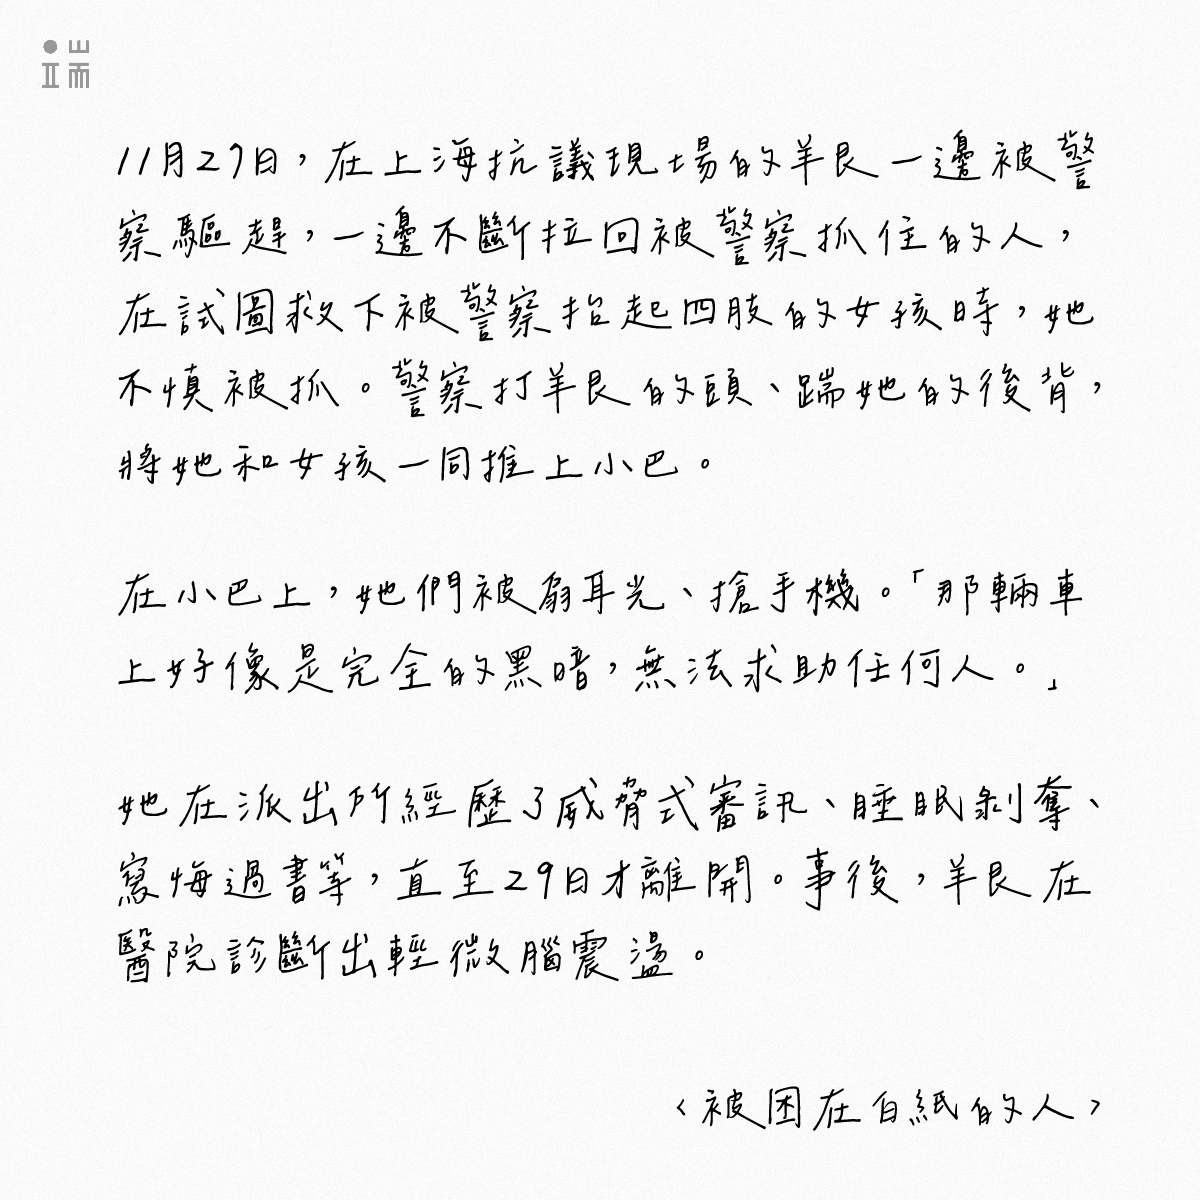 端
11月27日，在上海抗議現場的羊艮一邊被警
察驅趕，一邊不斷拉回被警察抓住的人，
在試圖救下被警察抬起四肢的女孩時，她
不慎被抓。警察打羊艮的頭、踹她的後背，
將她和女孩一同推上小巴。
在小巴上，她們被扇耳光、搶手機。「那輛車
上好像是完全的黑暗，無法求助任何人。」
她在派出所經歷了威脅式審訊、睡眠剝奪、
寫悔過書等，直至29日才離開。事後，羊艮在
醫院診斷出輕微腦震盪。
〈被困在白紙的人〉